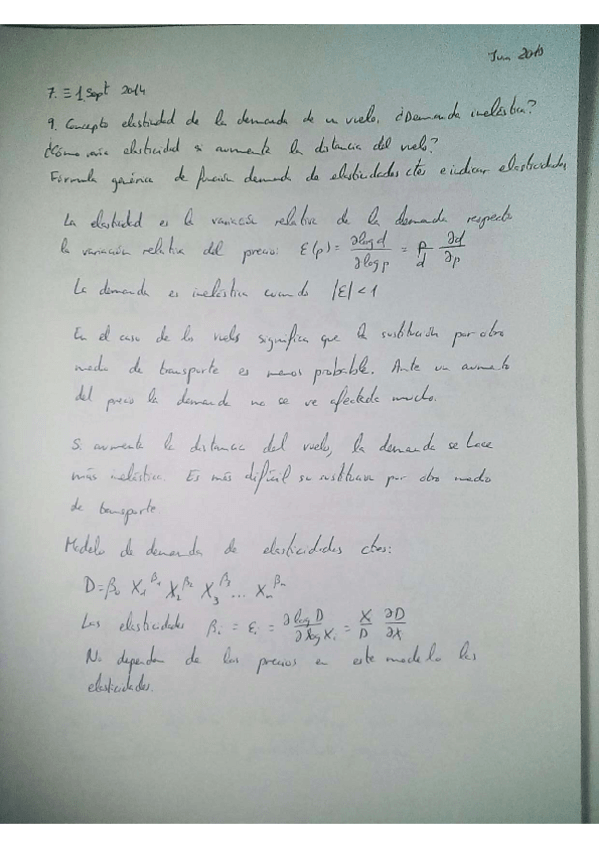 Jun 2013
7. ≡ 1 Sept 2014
9. Concepto elasticidad de la demanda de un vuelo. ¿Demanda inelástica?
¿Cómo varía elasticidad si aumenta la distancia del vuelo?
Fórmula genérica de función demanda de elasticidades ctes e indicar elasticidades
La elasticidad es la variación relativa de la demanda respecto
la variación relativa del precio: ε(p) = ∂log d / ∂log p = p/d ∂d/∂p
La demanda es inelástica cuando |ε| < 1
En el caso de los vuelos significa que la sustitución por otro
medio de transporte es menos probable. Ante un aumento
del precio la demanda no se ve afectada mucho.
Si aumenta la distancia del vuelo, la demanda se hace
más inelástica. Es más difícil su sustitución por otro medio
de transporte
Modelo de demanda de elasticidades ctes:
D = β₀ X₁^β₁ X₂^β₂ X₃^β₃ ... Xₙ^βₙ
Las elasticidades βᵢ = εᵢ = ∂log D / ∂log Xᵢ = X/D ∂D/∂X
No dependen de los precios en este modelo las
elasticidades.